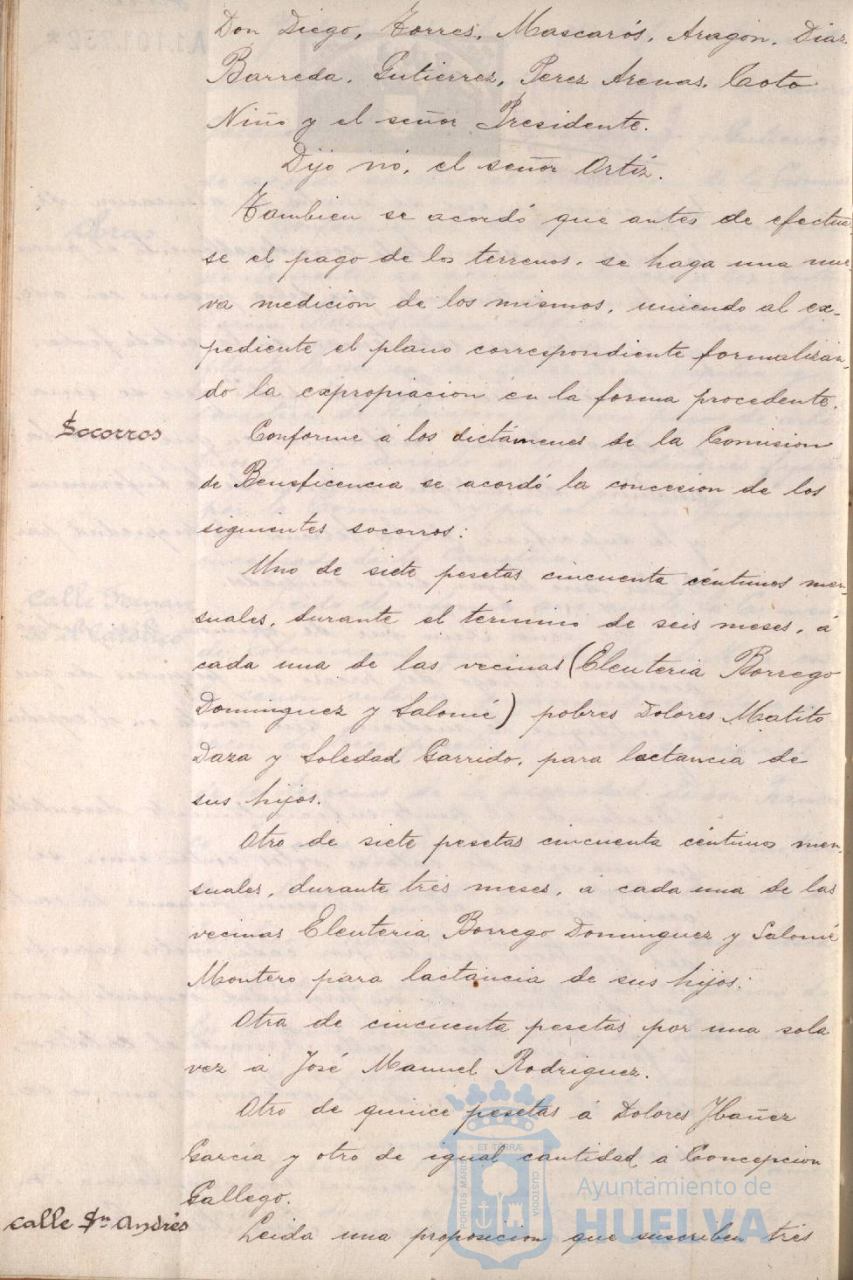 Don Diego, Torres, Mascarós, Aragón, Diaz
Barreda, Gutierrez, Perez Arenas, Coto
Niño y el señor Presidente.
Dijo nó, el señor Ortiz.
Tambien se acordó que antes de efectuar
se el pago de los terrenos, se haga una nue-
va medición de los mismos, uniendo al ex-
pediente el plano correspondiente formalizan-
do la expropiacion en la forma procedente.
Socorros
Conforme á los dictámenes de la Comision
de Beneficencia se acordó la concesion de los
siguientes socorros:
Uno de siete pesetas cincuenta céntimos men-
suales, durante el término de seis meses, á
cada una de las vecinas (Eleuteria Borrego
Dominguez y Salomé) pobres Dolores Matito
Daza y Soledad Garrido, para lactancia de
sus hijos.
Otro de siete pesetas cincuenta céntimos men-
suales, durante tres meses, á cada una de las
vecinas Eleuteria Borrego Dominguez y Salomé
Montero para lactancia de sus hijos.
Otra de cincuenta pesetas por una sola
vez á José Manuel Rodriguez.
Otro de quince pesetas á Dolores Ybañez
García y otro de igual cantidad á Concepcion
Gallego.
Calle Sn Andrés
Leida una proposicion que suscriben tres
PORTUS MARIS ET TERRÆ CUSTODIA
Ayuntamiento de
HUELVA